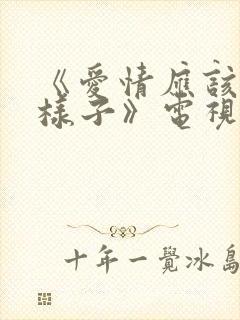 《愛情應該
樣子》電視
十年一覺冰島